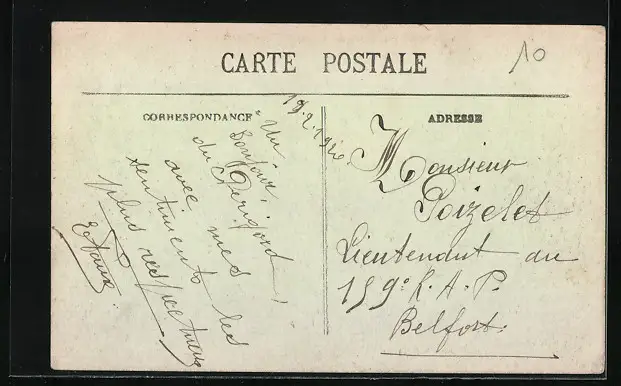 CARTE POSTALE
10
CORRESPONDANCE
19.2.1920.
Un
bonjour
du Périgord,
avec mes
sentiments les
plus respectueux
ADRESSE
Monsieur
Poizelet
Lieutenant au
159e R.A.P.
Belfort.